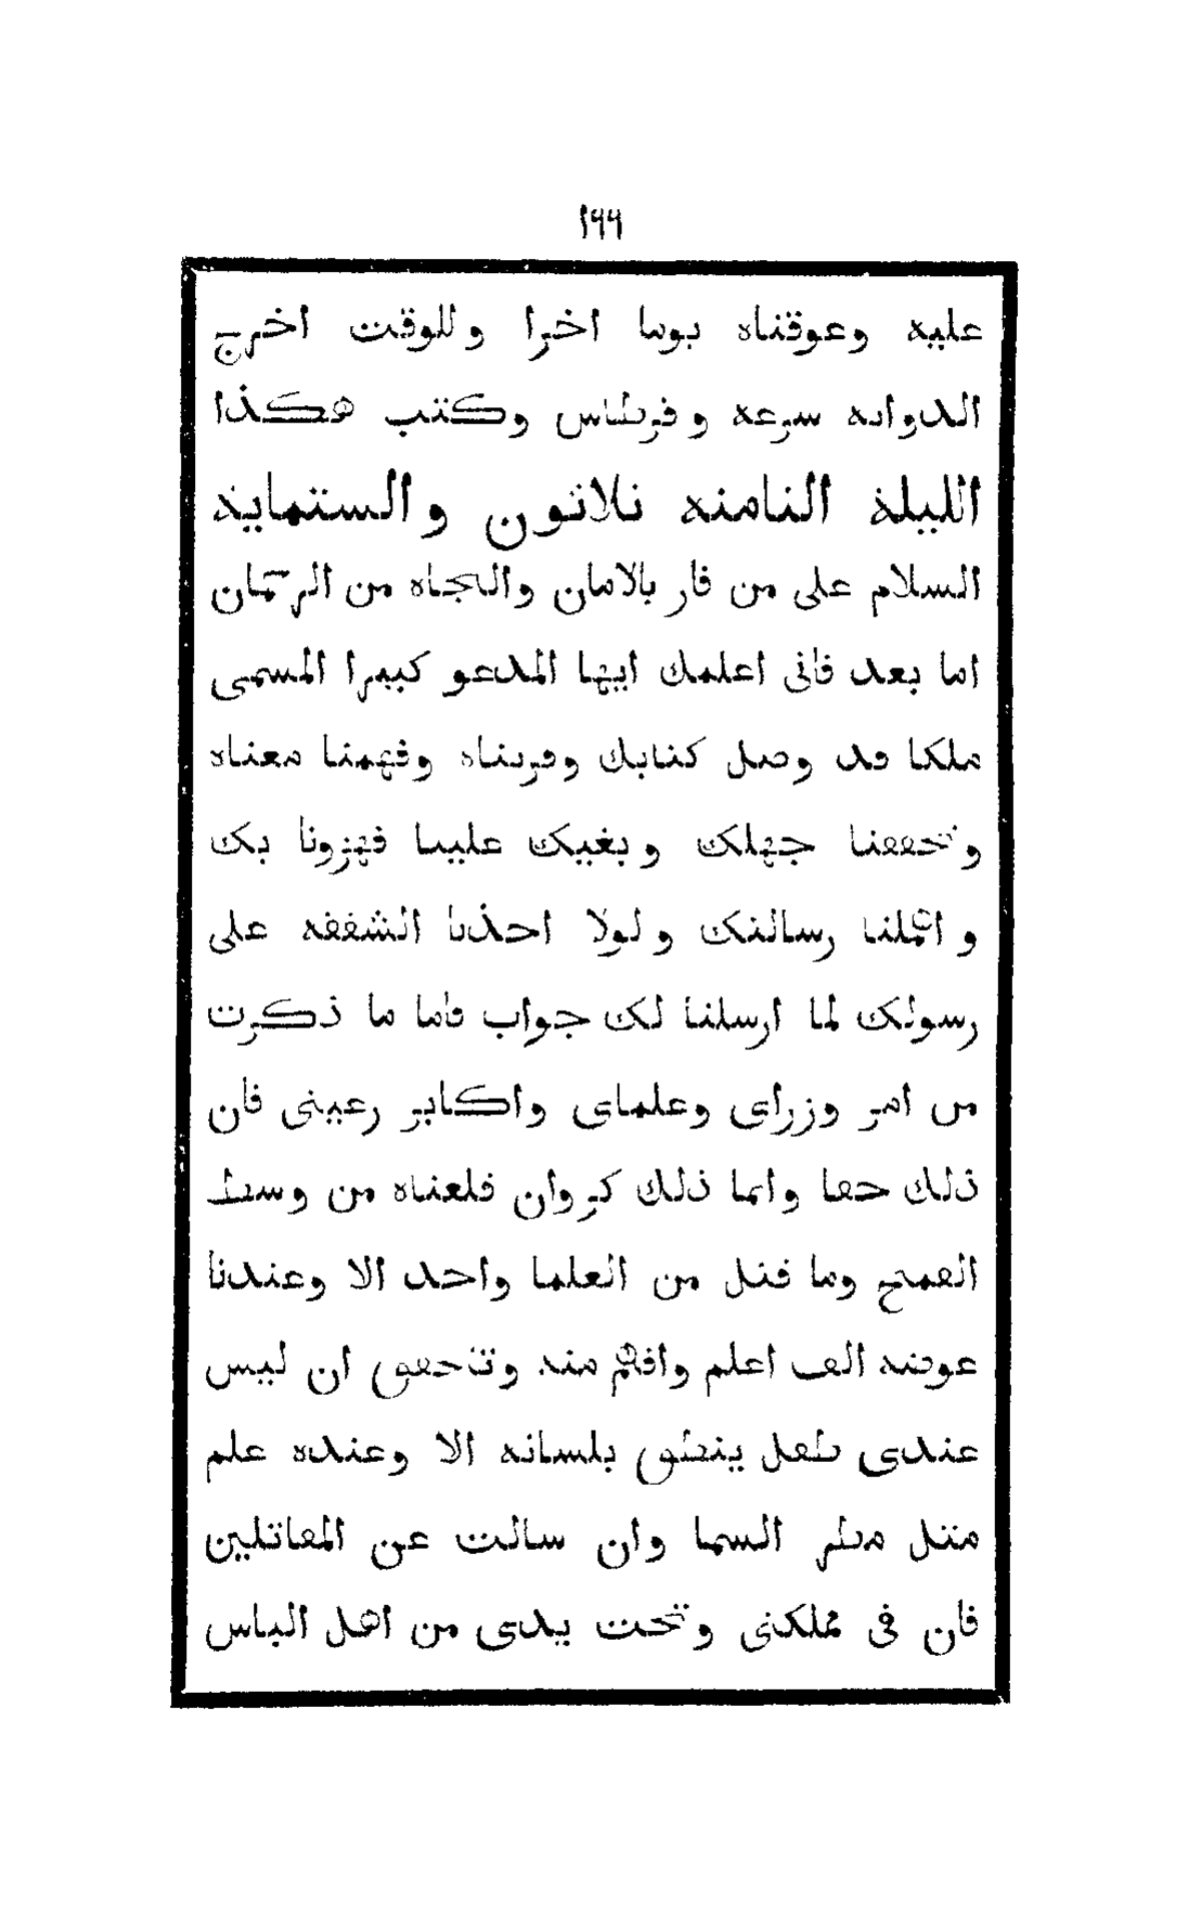 ١٩٩
عليه وعوقناه يوما اخرا وللوقت اخرج
الدوايه سرعه وقرطاس وكتب هكذا
الليلة الثامنه ثلاثون والستماية
السلام على من فار بالامان والنجاه من الرحمان
اما بعد فانى اعلمك ايها المدعو كبيرا المسمى
ملكا قد وصل كتابك وقريناه وفهمنا معناه
وتحققنا جهلك وبغيك علينا فهزونا بك
و رسالتك ولولا اخذنا الشفقه على
رسولك لما ارسلنا لك جواب فاما ما ذكرت
من امر وزراى وعلماى واكابر رعيتى فان
ذلك حقا وانما ذلك كزوان قلعناه من وسط
القمح وما قتل من العلما واحد الا وعندنا
عوضه الف اعلم وافهم منه وتتحقق ان ليس
عندى طفل ينطق بلسانه الا وعنده علم
مثل مطر السما وان سالت عن المقاتلين
فان فى مملكتى وتحت يدى من اهل الباس